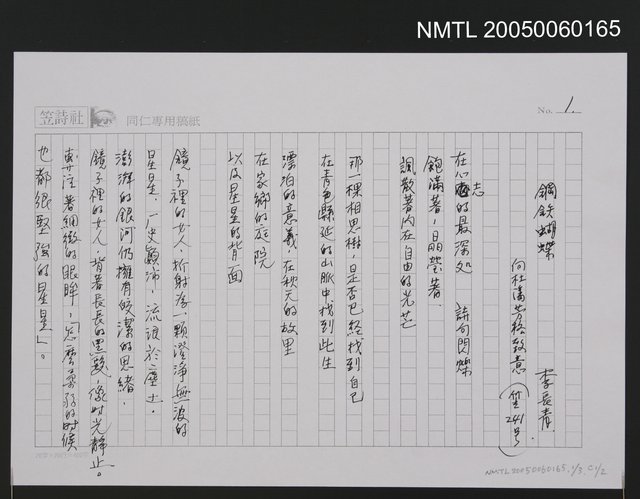 NMTL 20050060165
No. 1.
笠詩社 同仁專用稿紙
鋼鉄蝴蝶 李長青
向杜潘芳格致意(笠241号)
在心志的最深处 詩句閃爍
飽滿著,晶瑩著,
飄散著內在自由的光芒
那一棵相思樹,是否已経找到自己
在青色縣延的山脈中找到此生
漂泊的意義,在秋天的故里
在家鄉的庭院
以及星星的背面
鏡子裡的女人,折射為一顆澄淨無波的
星星,一史 流浪於塵土,
澎湃的銀河仍擁有皎潔的思緒,
鏡子裡的女人,背著長長的黑髮,像时光靜止。
專注著細緻的眼眸,「怎麼柔弱的时候
也都很堅強的星星」。
NMTL20050060165, 1/3, C1/2